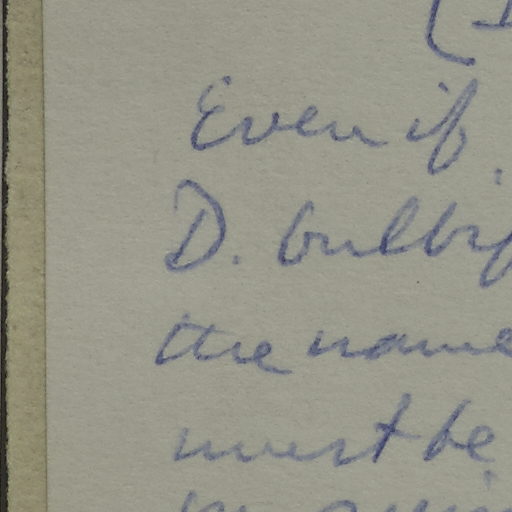 Even if
D. bulbif
the name
must be